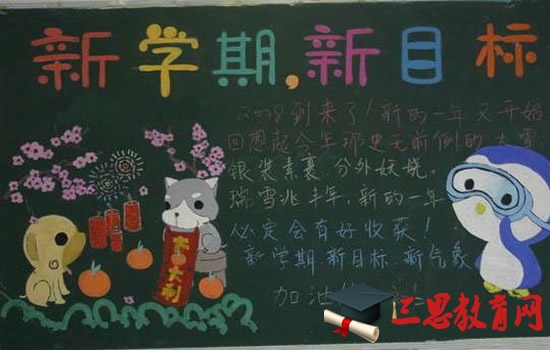 新学期,新目标
2008到来了!新的一年又开始
回想起今年那史无前例的大雪
银装素裹,分外妖娆。
瑞雪兆丰年,新的一年
必定会有好收获!
新学期,新目标,新气象
加油
大吉大利
三思教育网